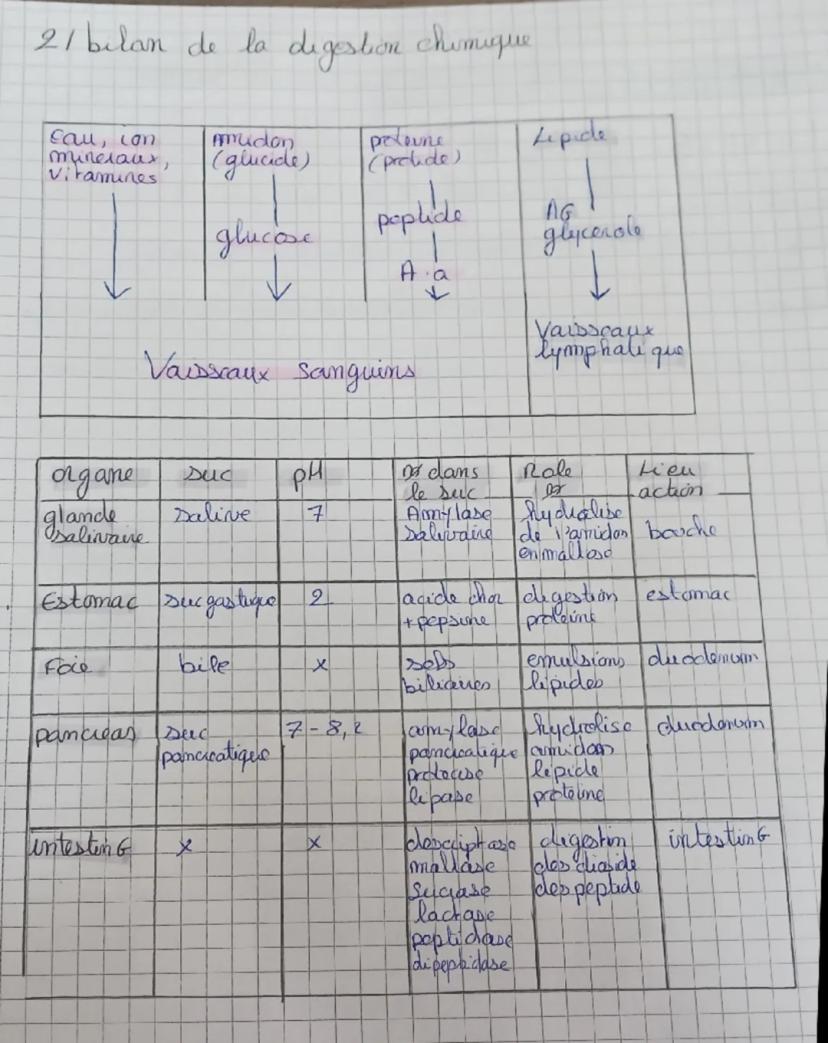 2/ bilan de la digestion chimique
eau, ion
mineraux,
vitamines
amidon
(glucide)
glucose
proteine
(protide)
peptide
A.a
Lipide
AG
glycerole
Vaisseaux sanguins
Vaisseaux
lymphatique
organe
suc
pH
dans
le suc
Role
Lieu
action
glande
salivaire
salive
7
Amylase
salivaire
hydrolise
de l'amidon
en maltose
bouche
Estomac
suc gastrique
2
acide chor
+ pepsine
digestion
proteine
estomac
Foie
bile
x
sels
biliaires
emulsions
lipides
duodenum
pancreas
suc
pancreatique
7-8,2
amylase
pancreatique
protease
lipase
hydrolise
amidon
lipide
proteine
duodenum
intestin G
x
x
maltase
sucrase
lactase
peptidase
dipeptidase
digestion
des
des peptide
intestin G